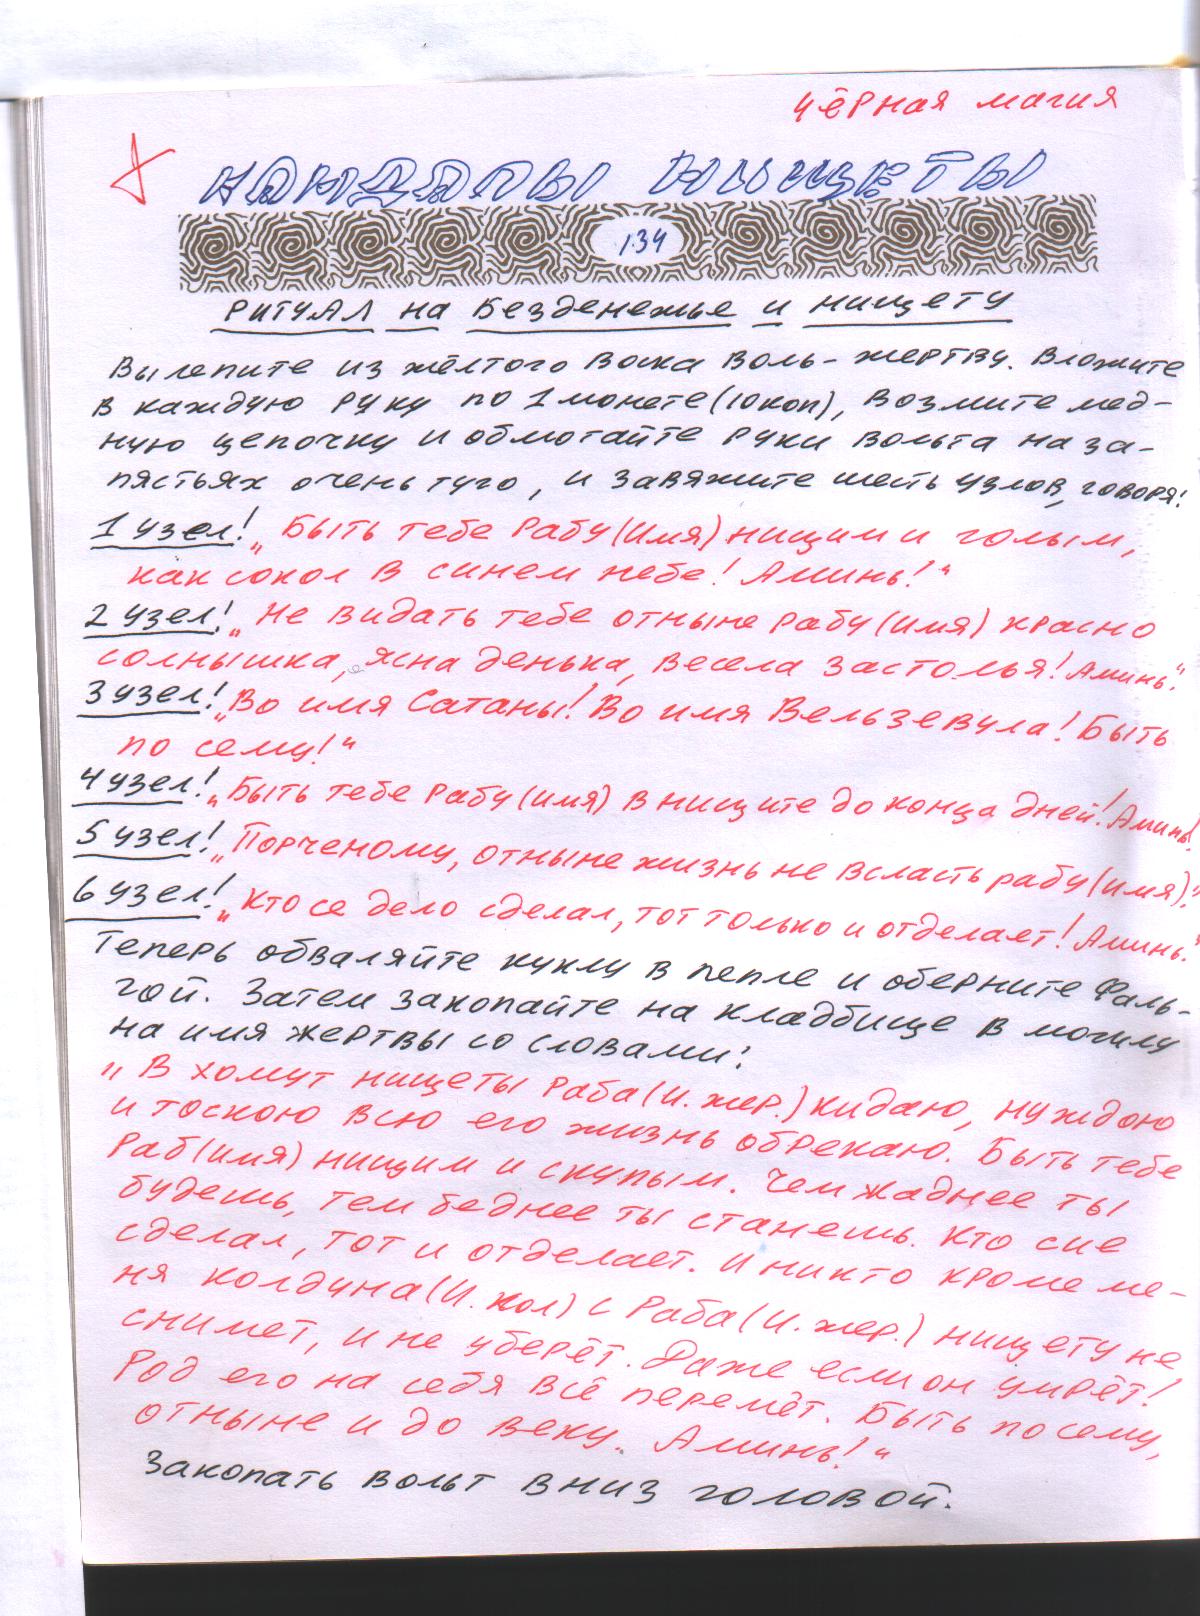 чёрная магия
Кандалы нищеты
134
Ритуал на безденежье и нищету
Вылепите из жёлтого воска воль- жертву. Вложите
в каждую руку по 1 монете (10 коп), возмите мед-
ную цепочку и обмотайте руки вольта на за-
пястьях очень туго, и завяжите шесть узлов, говоря!
1 узел! „Быть тебе рабу (имя) нищим и голым,
как сокол в синем небе! Аминь!“
2 узел! „Не видать тебе отныне рабу (имя) красно
солнышка, ясна денька, весела застолья! Аминь.“
3 узел! „Во имя Сатаны! Во имя Вельзевула! Быть
по сему!“
4 узел! „Быть тебе рабу (имя) в нищите до конца дней! Аминь!
5 узел! „Порченому, отныне жизнь не всласть рабу (имя).“
6 узел! „Кто се дело сделал, тот только и отделает! Аминь.“
Теперь обваляйте куклу в пепле и оберните фаль-
гой. Затем закопайте на кладбище в могилу
на имя жертвы со словами:
„В хомут нищеты раба (И. жер.) кидаю, нуждою
и тоскою всю его жизнь обрекаю. Быть тебе
раб (имя) нищим и скупым. Чем жаднее ты
будешь, тем беднее ты станешь. Кто сие
сделал, тот и отделает. И никто кроме ме-
ня колдуна (И. кол) с раба (И. жер.) нищету не
снимет, и не уберёт. Даже если он умрёт!
Род его на себя всё перемёт. Быть посему,
отныне и до веку. Аминь!“
Закопать вольт вниз головой.